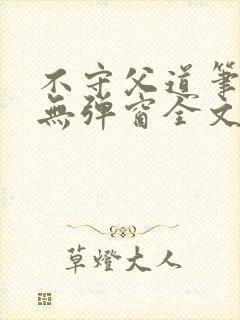 不守父道筆
無彈窗全文
草燈大人